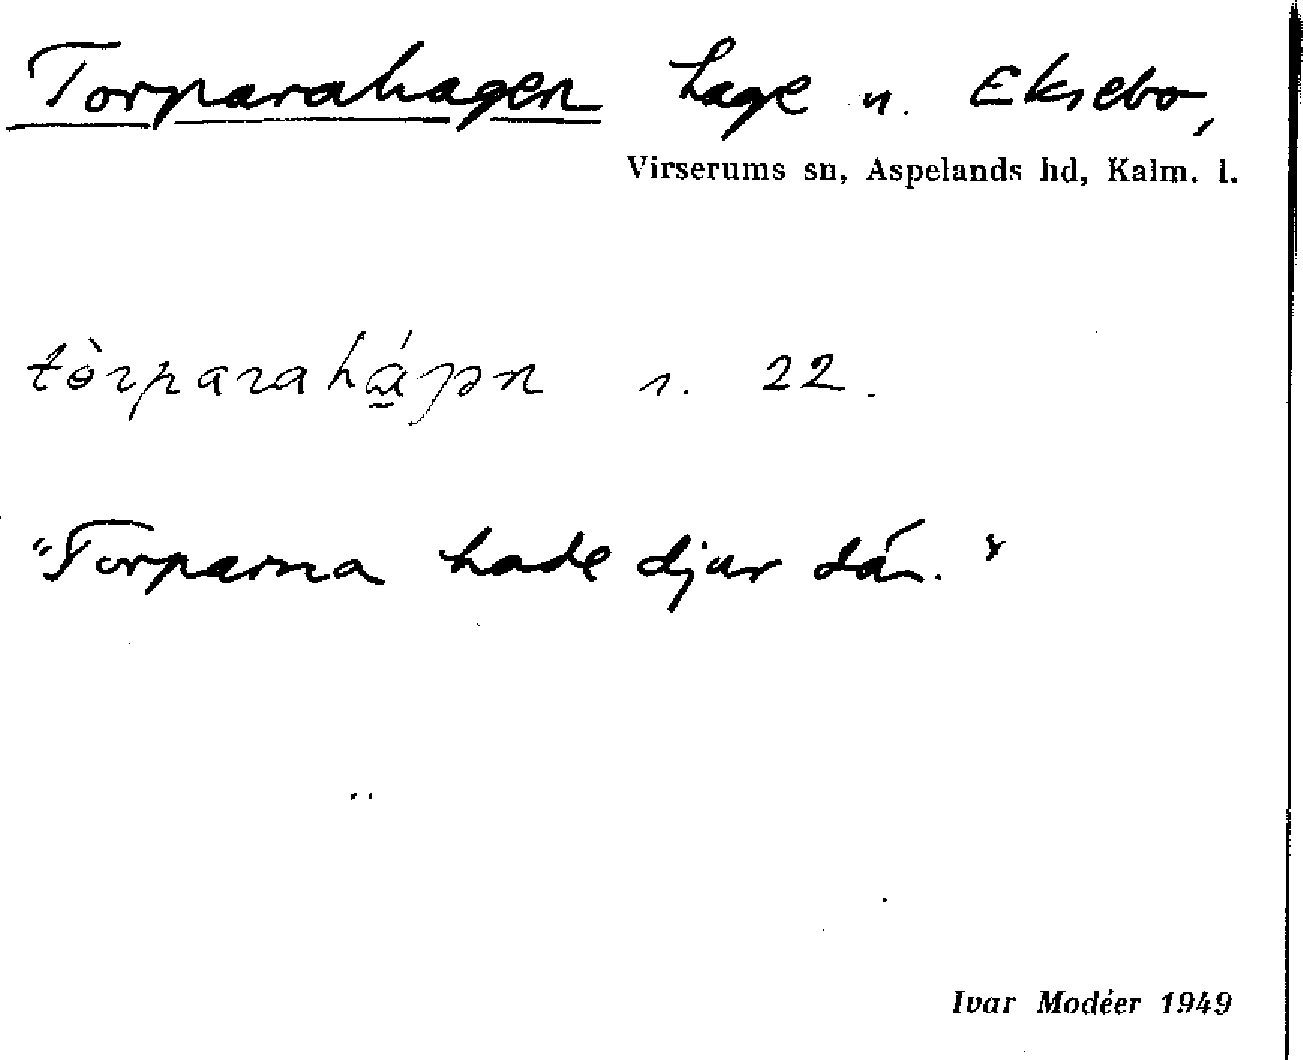 Torparahagen hage u. Eksebo,
Virserums sn, Aspelands hd, Kalm. l.
r. 22.
"Torparna hade djur dár."
Ivar Modéer 1949